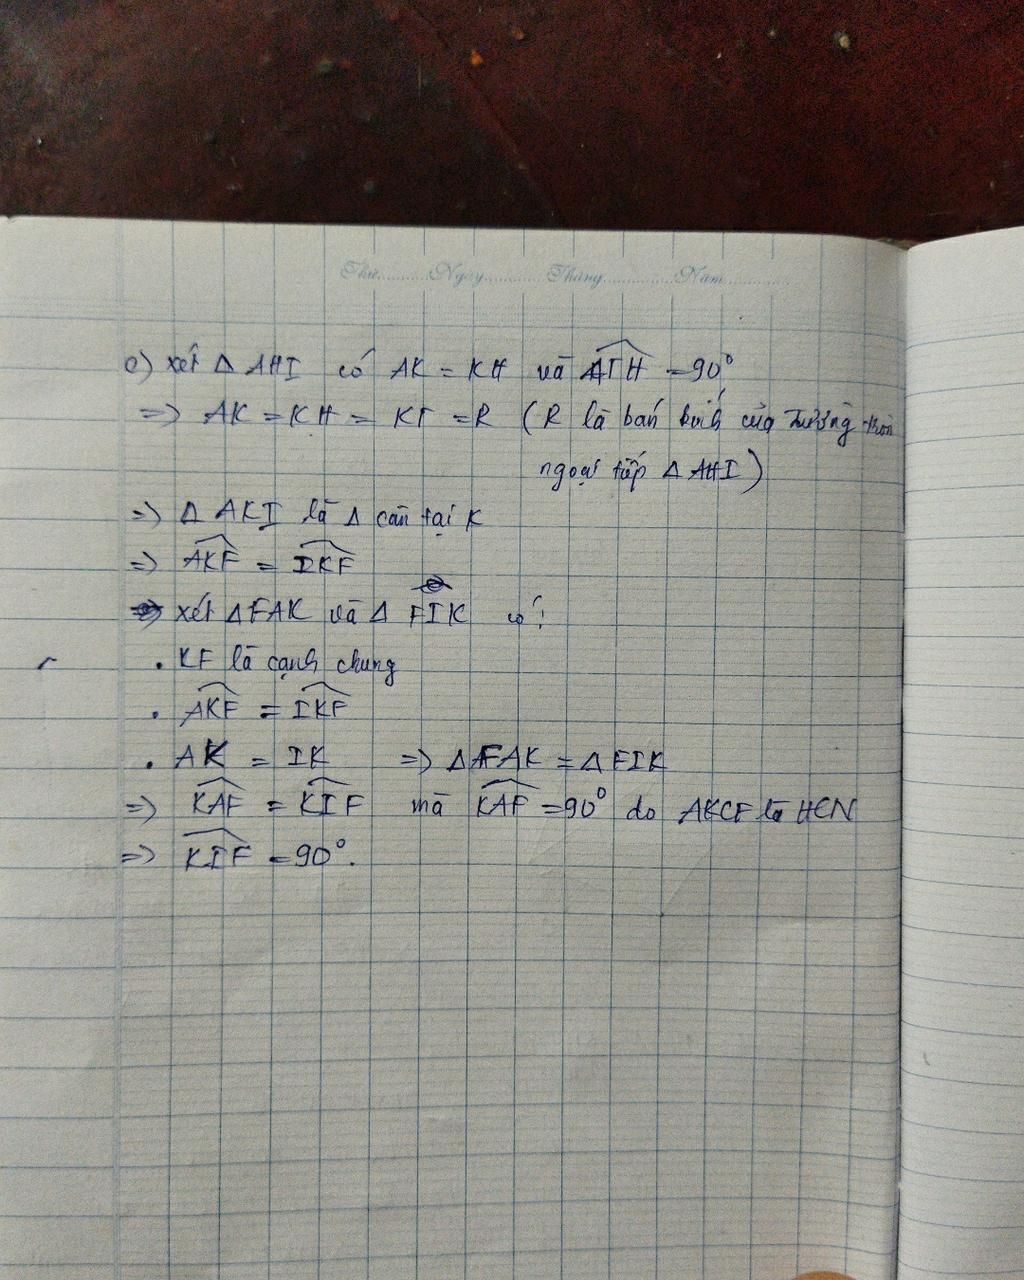 Thứ..........Ngày...........Tháng.............Năm............
c) xét Δ AHI có AK = KH và AIH = 90°
=> AK = KH = KI = R (R là bán kính của đường tròn
ngoại tiếp Δ AHI)
=> Δ AKI là Δ cân tại K
=> AKF = IKF
xét Δ FAK và Δ FIK có:
• KF là cạnh chung
• AKF = IKF
• AK = IK => Δ FAK = Δ FIK
=> KAF = KIF mà KAF = 90° do AKCF là HCN
=> KIF = 90°.